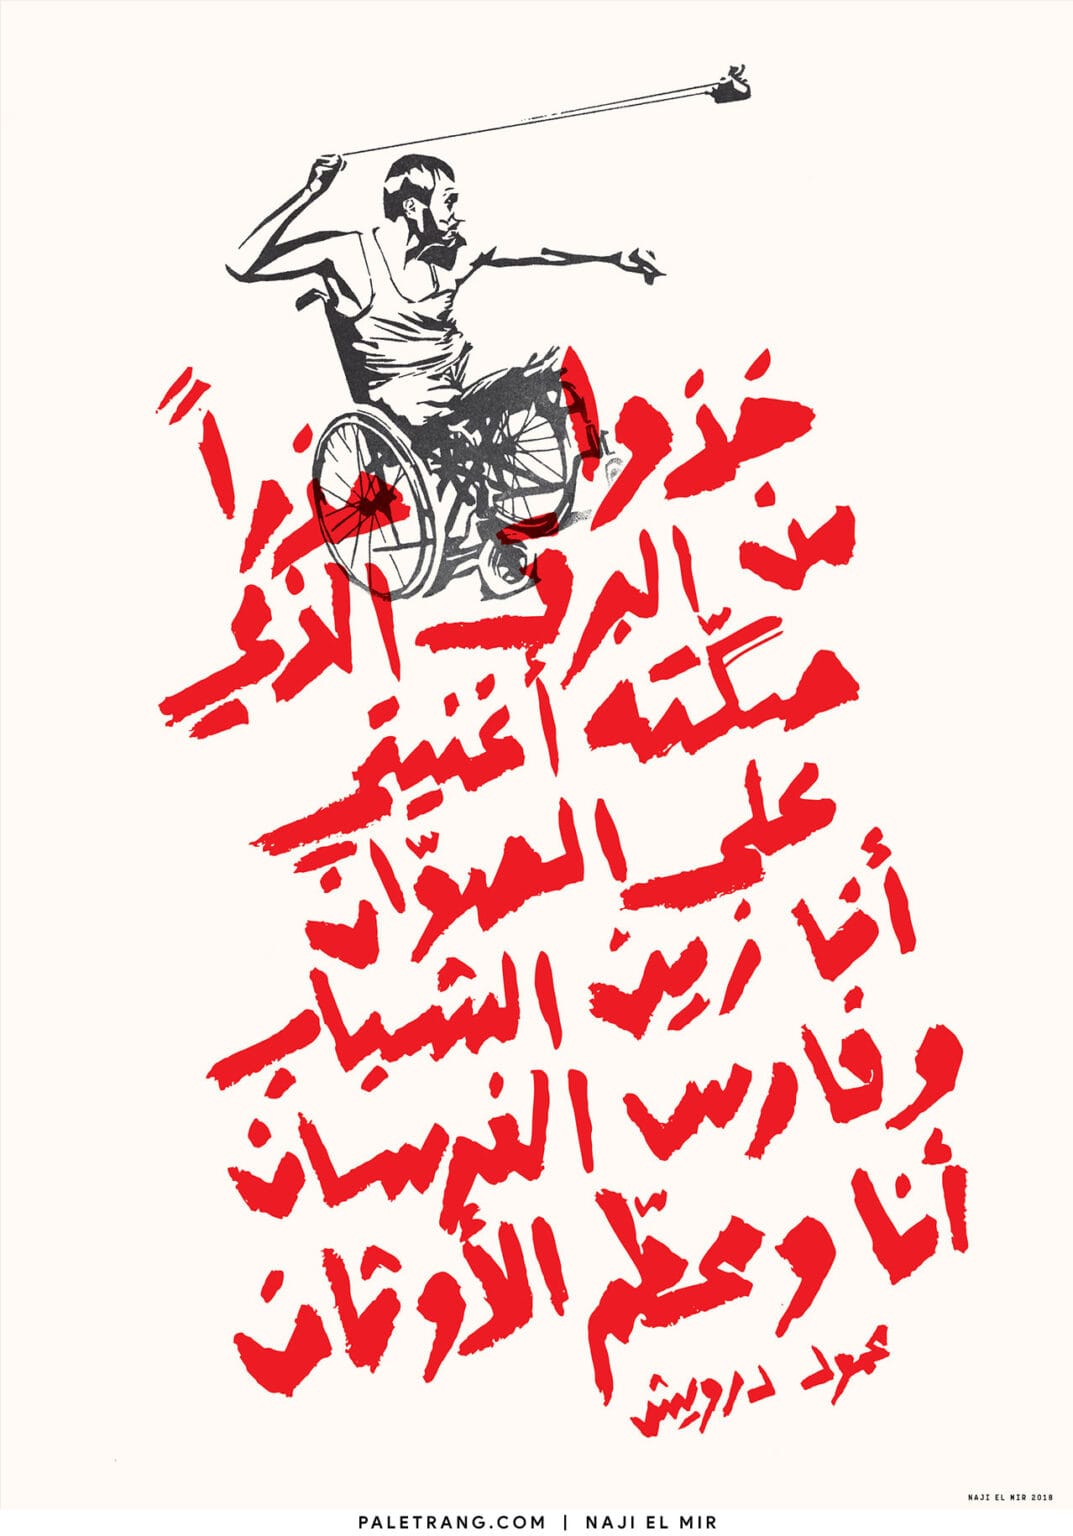 خذوا حذراً
من البرق الذي
صكّته أغنيتي
على الصوّان
أنا زين الشباب
وفارس الفرسان
أنا ومحطّم الأوثان
محمود درويش
NAJI EL MIR 2018
PALETRANG.COM | NAJI EL MIR